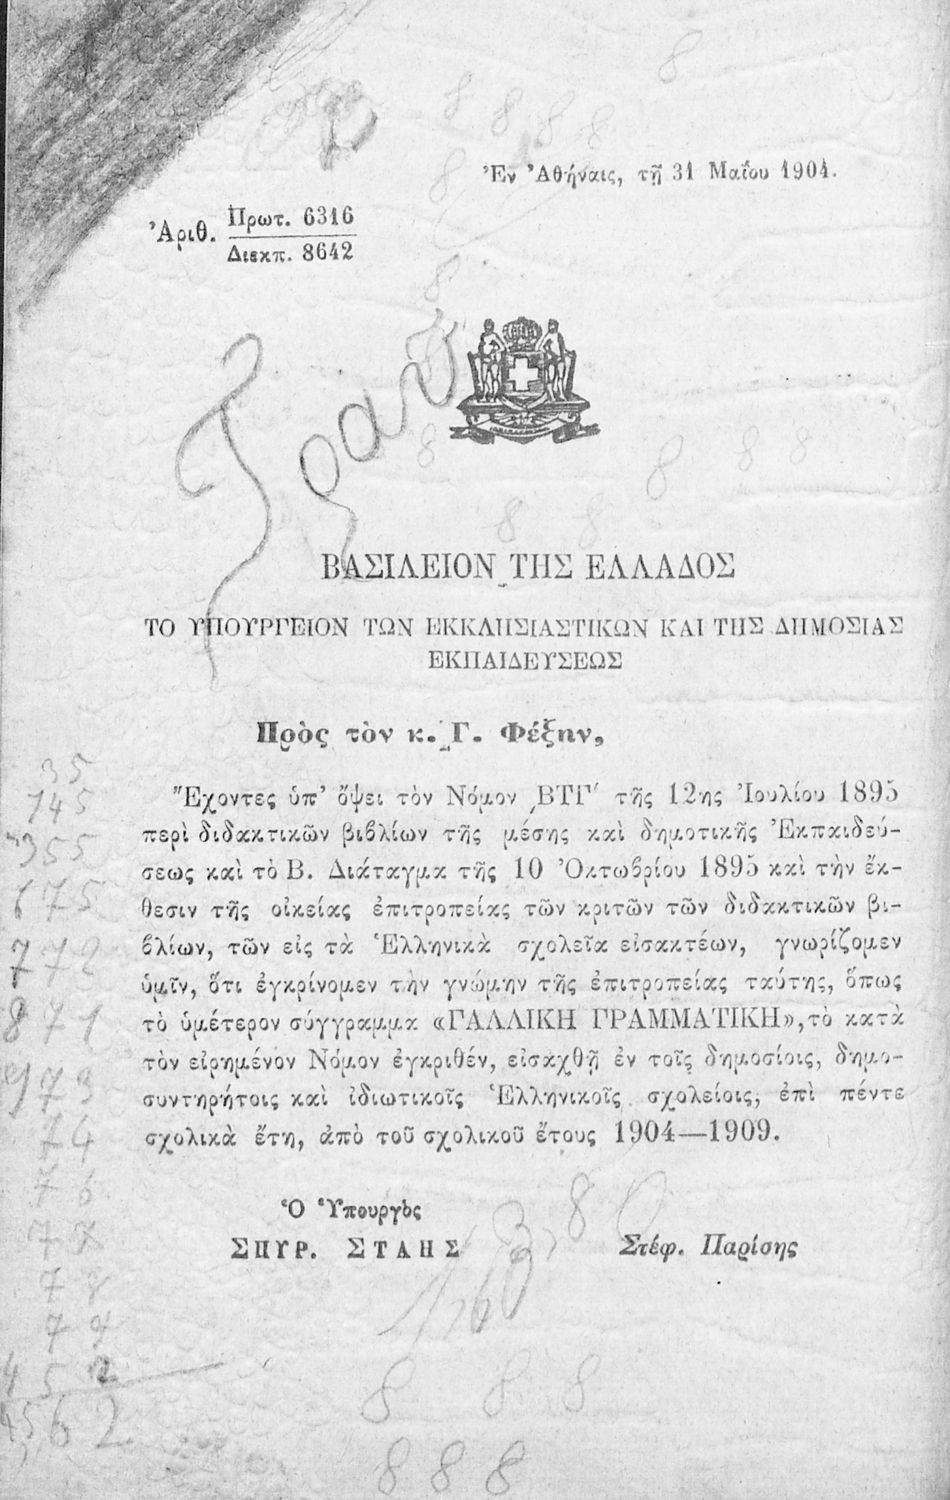 Ἐν Ἀθήναις, τῇ 31 Μαΐου 1904.
Ἀριθ. Πρωτ. 6316
Διεκπ. 8642
ΒΑΣΙΛΕΙΟΝ ΤΗΣ ΕΛΛΑΔΟΣ
ΤΟ ΥΠΟΥΡΓΕΙΟΝ ΤΩΝ ΕΚΚΛΗΣΙΑΣΤΙΚΩΝ ΚΑΙ ΤΗΣ ΔΗΜΟΣΙΑΣ
ΕΚΠΑΙΔΕΥΣΕΩΣ
Πρὸς τὸν κ. Γ. Φέξην,
Ἔχοντες ὑπ' ὄψει τὸν Νόμον ΒΤΓ′ τῆς 12ης Ἰουλίου 1895
περὶ διδακτικῶν βιβλίων τῆς μέσης καὶ δημοτικῆς Ἐκπαιδεύ-
σεως καὶ τὸ Β. Διάταγμα τῆς 10 Ὀκτωβρίου 1895 καὶ τὴν ἔκ-
θεσιν τῆς οἰκείας ἐπιτροπείας τῶν κριτῶν τῶν διδακτικῶν βι-
βλίων, τῶν εἰς τὰ Ἑλληνικὰ σχολεῖα εἰσακτέων, γνωρίζομεν
ὑμῖν, ὅτι ἐγκρίνομεν τὴν γνώμην τῆς ἐπιτροπείας ταύτης, ὅπως
τὸ ὑμέτερον σύγγραμμα «ΓΑΛΛΙΚΗ ΓΡΑΜΜΑΤΙΚΗ», τὸ κατὰ
τὸν εἰρημένον Νόμον ἐγκριθέν, εἰσαχθῇ ἐν τοῖς δημοσίοις, δημο-
συντηρήτοις καὶ ἰδιωτικοῖς Ἑλληνικοῖς σχολείοις, ἐπὶ πέντε
σχολικὰ ἔτη, ἀπὸ τοῦ σχολικοῦ ἔτους 1904—1909.
Ὁ Ὑπουργὸς
ΣΠΥΡ. ΣΤΑΗΣ
Στέφ. Παρίσης
35
745
355
675
772
871
973
74
76
77
78
79
452
4562
8 8 8
8 8 8